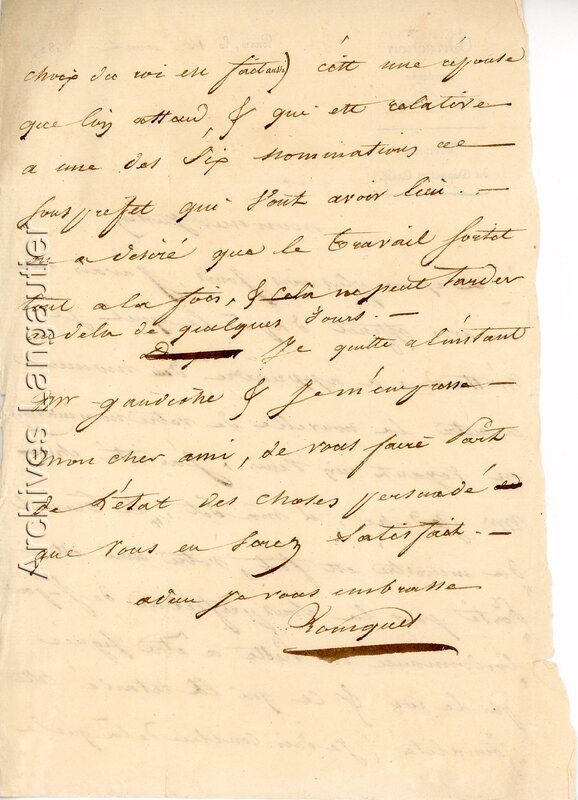 choix du roi est fait aussi) c'ést une réponse
que l'on attend, & qui est relative
a une des Six nominations de
sous prefet qui vont avoir lieu. —
a desiré que le travail sortit
tout a la fois, & cela ne peut tarder
au dela de quelques Jours. —
Je quitte a l'instant
Mr gaudiche & Je m'empresse —
mon cher ami, de vous faire Part
de l'état des choses persuadé
que vous en Serez Satisfait. —
adieu Je vous embrasse
Archives Langautier